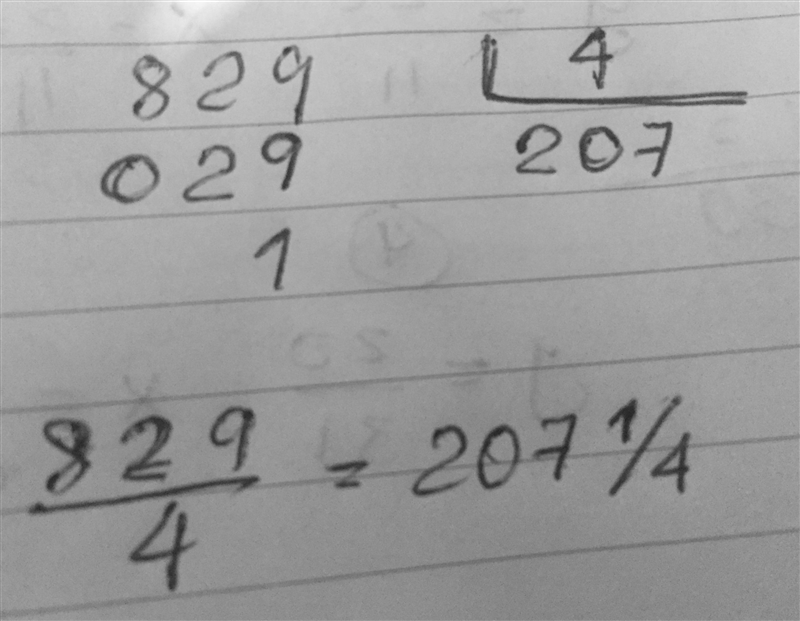 829 4
029 207
1
829/4 = 207 1/4